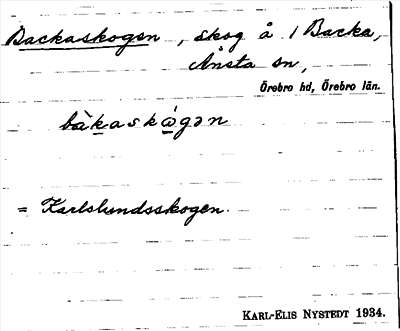 Backaskogen, skog å 1 Backa,
Ånsta sn,
Örebro hd, Örebro län.
bàkaskó̱gən
= Karlslundsskogen.
KARL-ELIS NYSTEDT 1934.